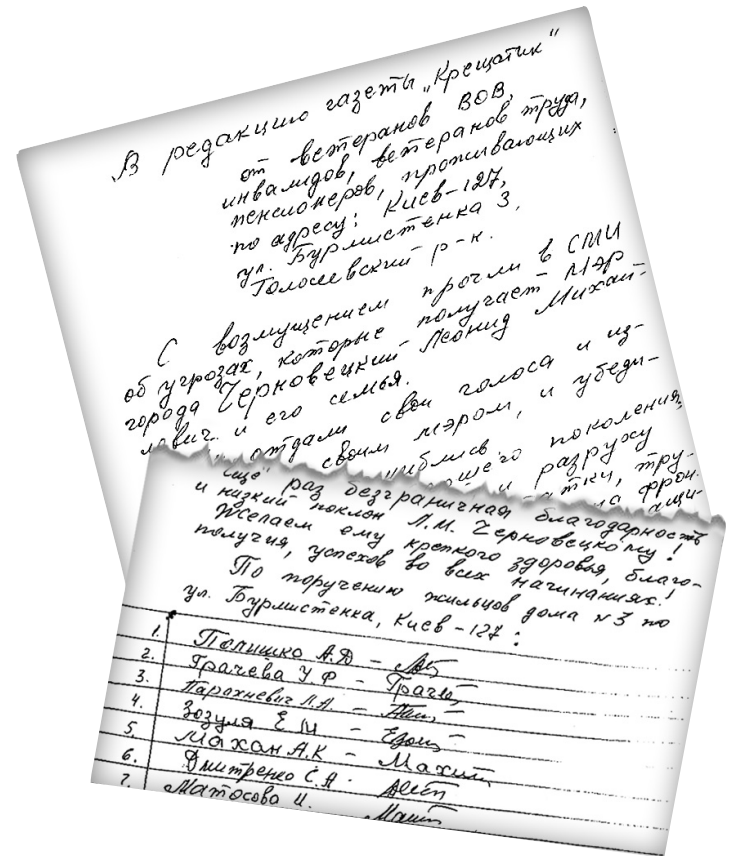 В редакцию газеты „Крещатик"
от ветеранов ВОВ,
инвалидов, ветеранов труда,
пенсионеров, проживающих
по адресу: Киев-127,
ул. Бурмистенка 3,
Голосеевский р-н.
С возмущением прочли в СМИ
об угрозах, которые получает Мэр
города Черновецкий Леонид Михай-
лович и его семья.
отдали свои голоса и из-
своим мэром, и убеди-
поколения,
и разруху
тру-
фрон-
еще раз безграничная благодарность
и низкий поклон Л.М. Черновецкому!
Желаем ему крепкого здоровья, благо-
получия, успехов во всех начинаниях!
По поручению жильцов дома №3 по
ул. Бурмистенка, Киев-127:
1. Полишко А.Д –
2. Грачева У Ф – Грачев
3. Парахневич Л.А –
4. Зозуля Е М –
5. Махан А.К –
6. Дмитренко С.А.
7. Матосова И.